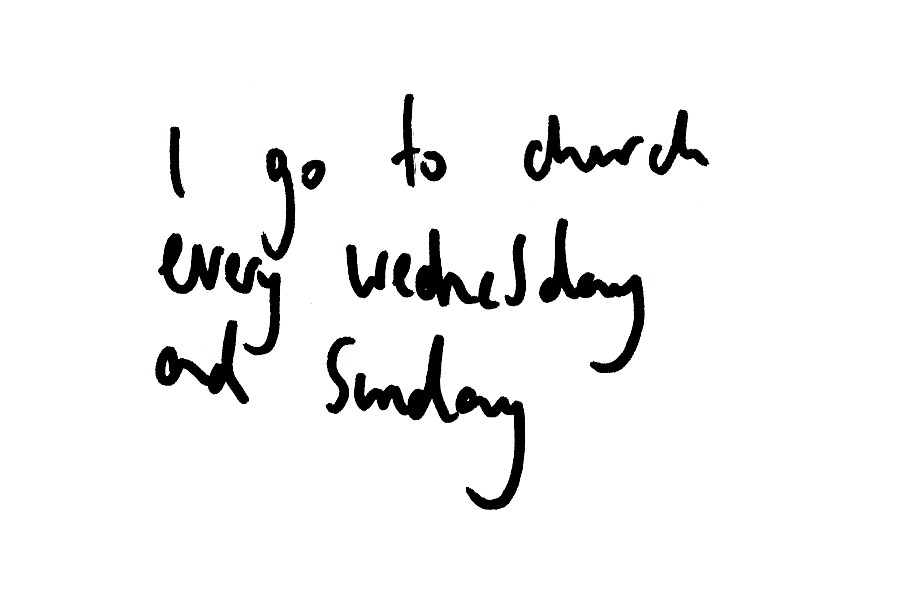 I go to church
every wednesday
and Sunday